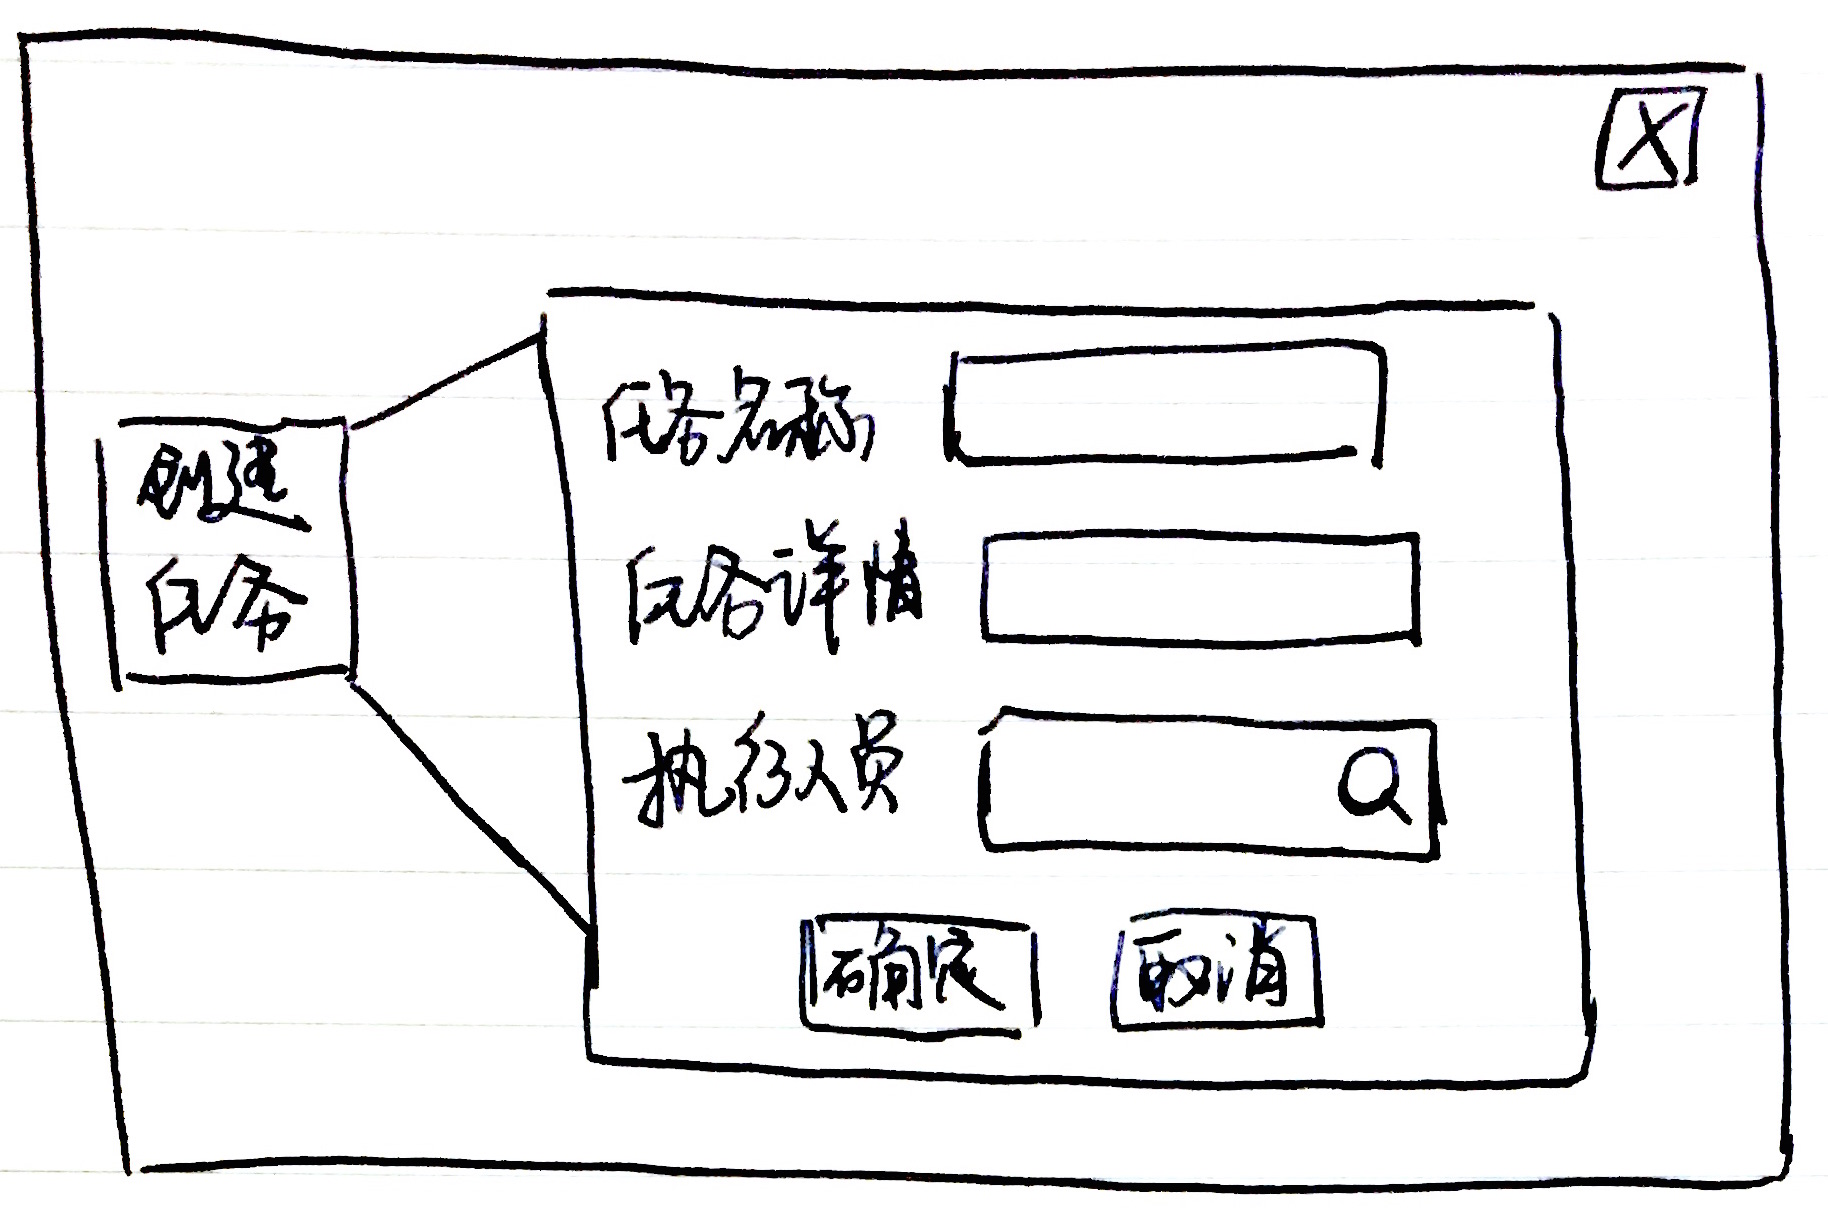 X
创建
任务
任务名称
任务详情
执行人员
确定
取消